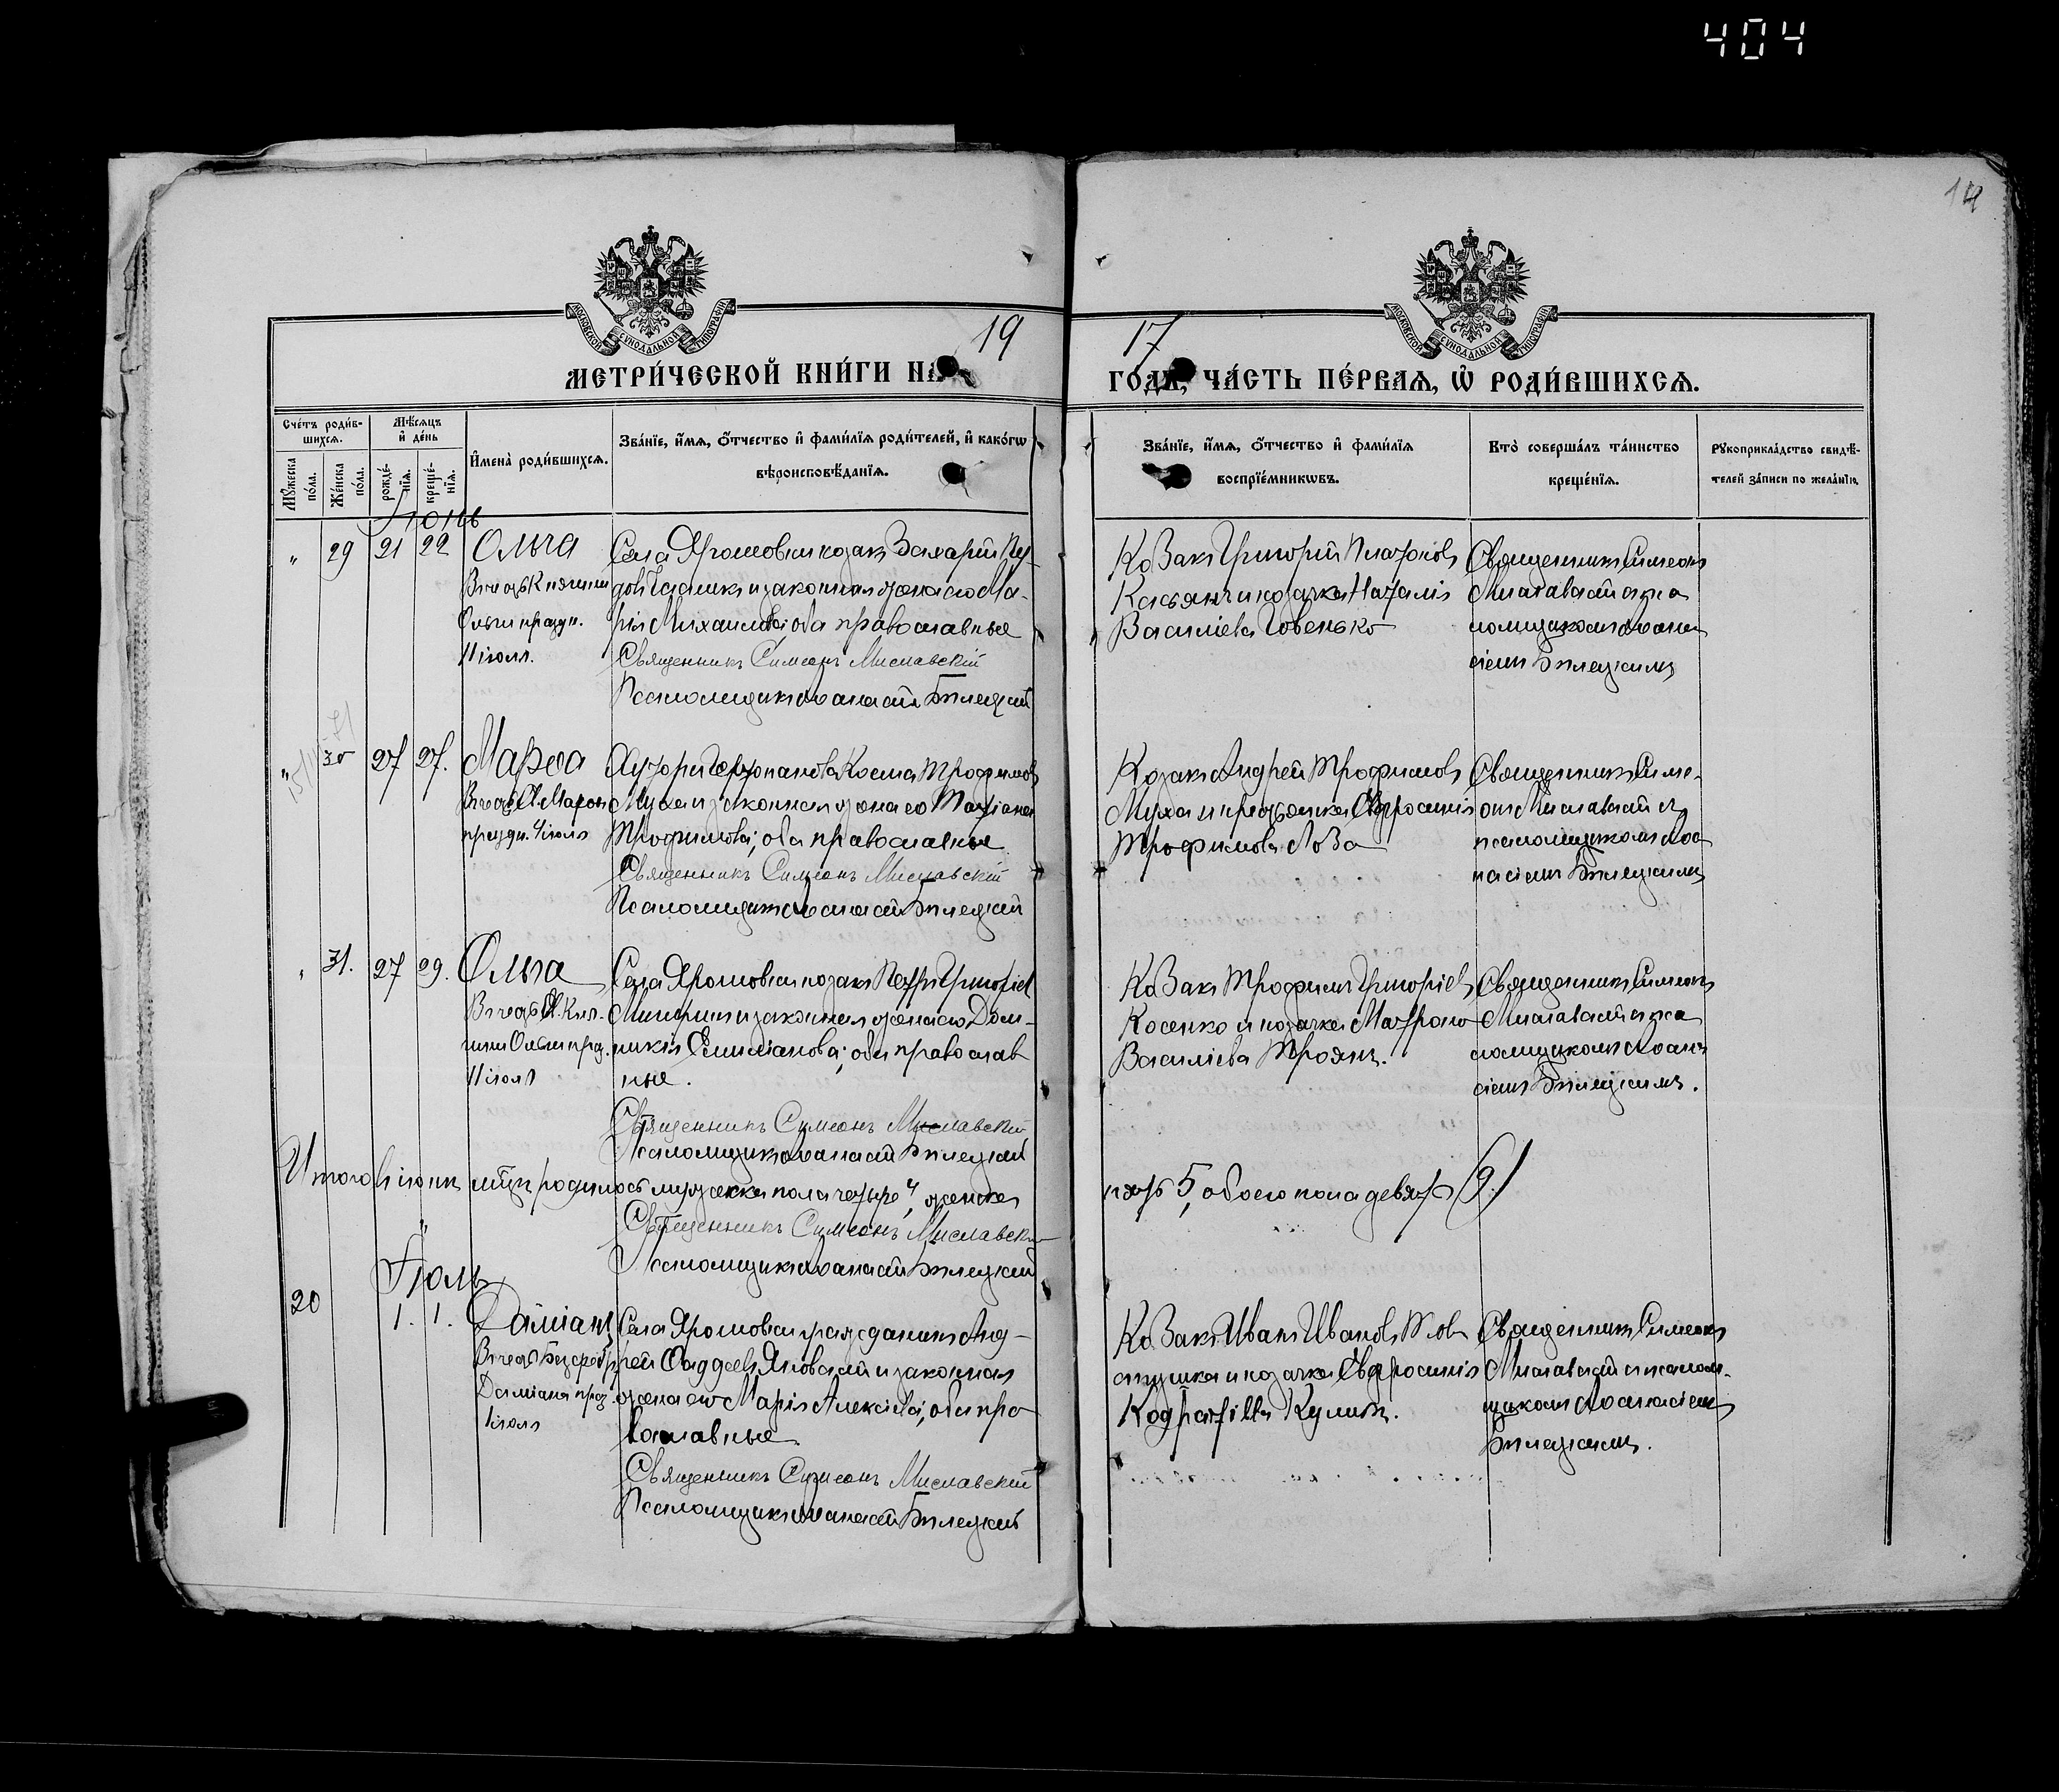 404
14
МОСКОВСКОЙ СѴНОДАЛЬНОЙ ТИПОГРАФІИ
МОСКОВСКОЙ СѴНОДАЛЬНОЙ ТИПОГРАФІИ
19 17
МЕТРИ́ЧЕСКОЙ КНИ́ГИ НА ГОДЪ, ЧА́СТЬ ПЕ́РВАЯ, Ѡ҆ РОДИ́ВШИХСЯ.
Сче́тъ роди́в-
шихся.
Мѣ́сяцъ
и҆ де́нь
Мꙋ́жеска
по́ла.
Же́нска
по́ла.
рожде́-
нїя.
креще́-
нїя.
И҆мена̀ роди́вшихся.
Зва́нїе, и҆́мя, ѻ҆́тчество и҆ фами́лїя роди́телей, и҆ како́гѡ
вѣроисповѣ́данїя.
Зва́нїе, и҆́мя, ѻ҆́тчество и҆ фами́лїя
воспрїе́мникѡвъ.
Кто̀ соверша́лъ та́инство
креще́нїя.
Рꙋкоприкла́дство свидѣ́-
телей за́писи по жела́нїю.
Іюнь
" 29 21 22 Ольга
Въ честь Княгини
Ольги праздн.
11 іюля.
Села Ярошовки козакъ Захарій
и законная жена его Ма-
рія Михайлова; оба православные
Священникъ Симеонъ Миславскій
Псаломщикъ Аѳанасій Билецкій
Козакъ Григорій Платоновъ
Касьянъ и козачка Наталія
Василіева Човенько
Священникъ Симеонъ
Миславскій и пса
ломщикомъ Аѳана
сіемъ Билецкимъ
" 30 27 27. Марѳа
Въ честь Св. Марѳы
праздн. 4 іюля
Хутора Козма Трофимовъ
Муха и законная жена его Татіана
Трофимова; оба православные
Священникъ Симеонъ Миславскій
Псаломщикъ Аѳанасій Билецкій
Козакъ Андрей Трофимовъ
Муха и Евфросинія
Трофимова Лоза
Священникъ Симе-
онъ Миславскій съ
псаломщикомъ Аѳа
насіемъ Билецкимъ
" 31. 27 29. Ольга
Въ честь Св. Кня-
гини Ольги праз.
11 іюля
Села Ярошовки козакъ Петръ Григоріев
и законная жена его Дом-
никія Емиліанова; оба православ
ные.
Священникъ Симеонъ Миславскій
Псаломщикъ Аѳанасій Билецкій
Козакъ Трофимъ Григоріевъ
Косенко и козачка Матрона
Василіева Троянъ.
Священникъ Симеонъ
Миславскій и пса
ломщикомъ Аѳана
сіемъ Билецкимъ.
Итого въ іюнѣ мѣсяцѣ родилось мужеска пола четыре 4, женска пять 5, обоего пола девять (9.)
Священникъ Симеонъ Миславскій
Псаломщикъ Аѳанасій Билецкій
Іюль
20 " 1. 1. Даміанъ
Въ честь Безсребр
Даміана праз.
1 іюля
Села Ярошовки гражданинъ Анд-
рей Фаддеевъ Яновскій и законная
жена его Марія Алексіева, оба пра
вославные
Священникъ Симеонъ Миславскій
Псаломщикъ Аѳанасій Билецкій
Козакъ Иванъ Ивановъ
и козачка Евфросинія
Кодратіева Кулишъ.
Священникъ Симеонъ
Миславскій и псалом-
щикомъ Аѳанасіемъ
Билецкимъ.